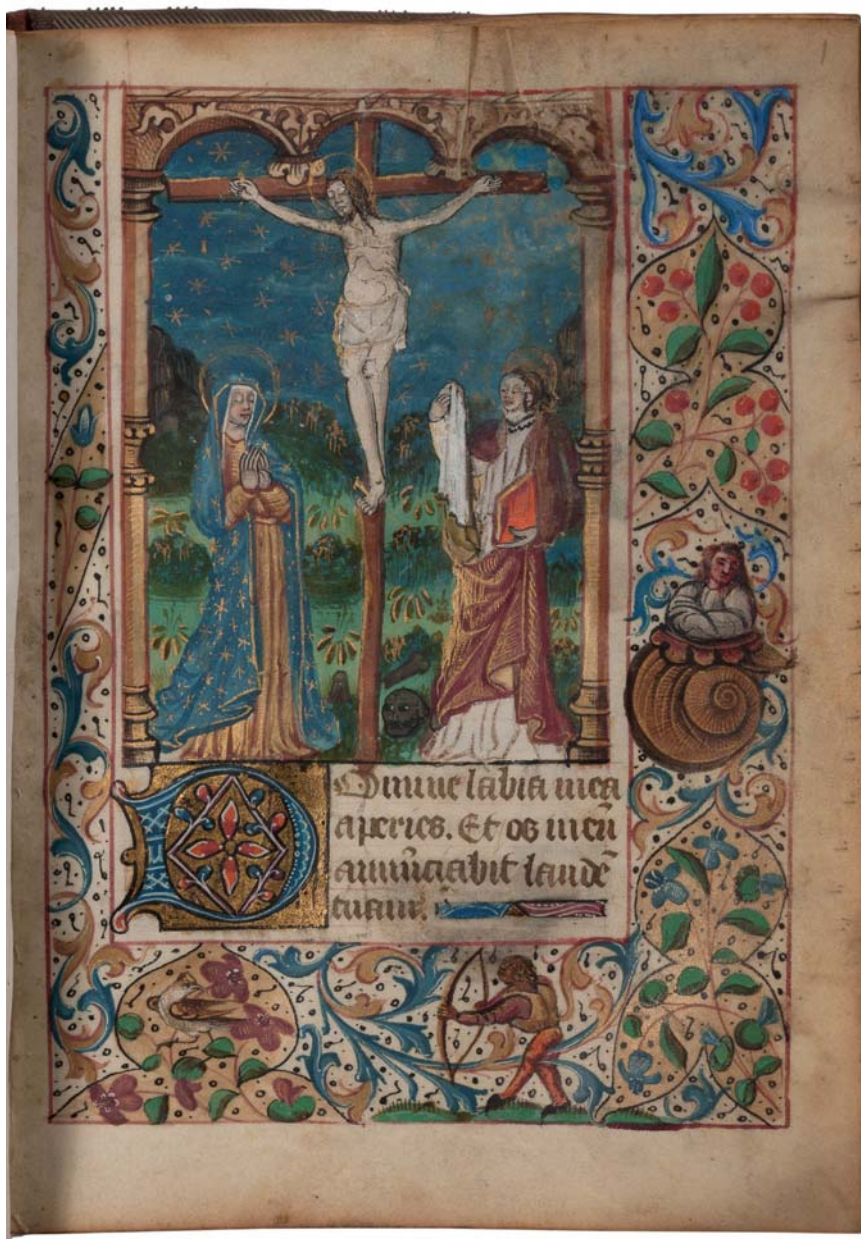 Domine labia mea
aperies. Et os meũ
annũciabit laudẽ
tuam.